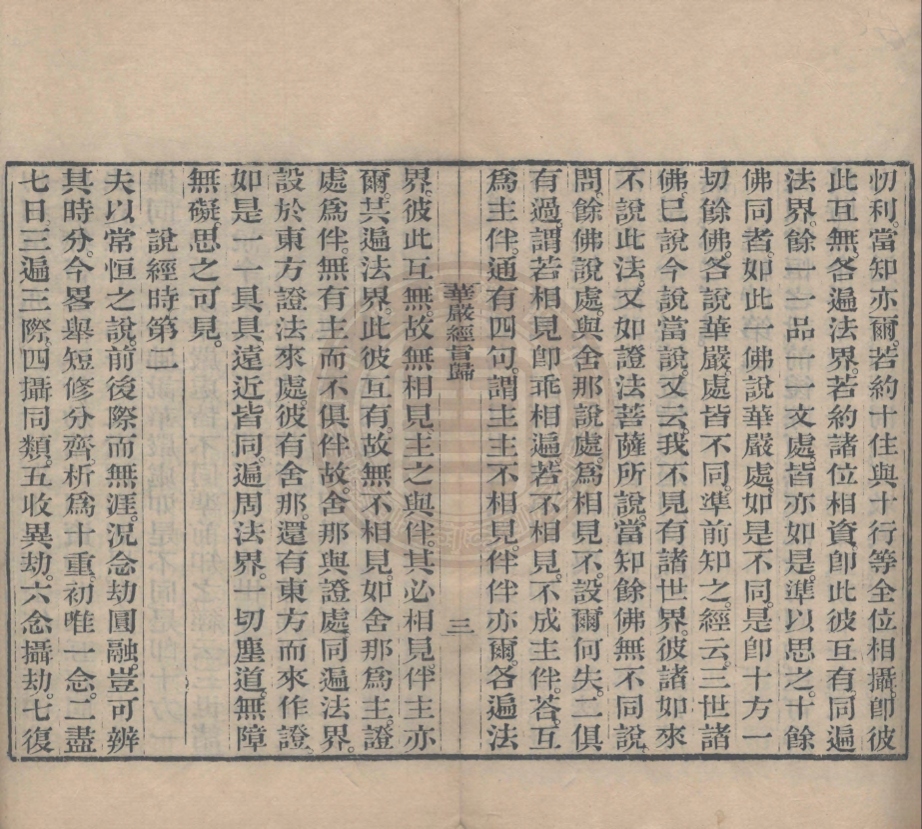 忉利。當知亦爾。若約十住與十行等全位相攝。卽彼
此互無。各遍法界。若約諸位相資。卽此彼互有。同遍
法界。餘一一品一一文處。皆亦如是。準以思之。十餘
佛同者。如此一佛說華嚴處。如是不同。是卽十方一
切餘佛。各說華嚴。處皆不同。準前知之。經云。三世諸
佛。已說今說當說。又云。我不見有諸世界。彼諸如來
不說此法。又如證法菩薩所說。當知餘佛無不同說。
問。餘佛說處。與舍那說處。爲相見不。設爾何失。二俱
有過。謂若相見卽乖相遍。若不相見。不成主伴。荅。互
爲主伴。通有四句。謂主主不相見。伴伴亦爾。各遍法
華嚴經旨歸
三
界。彼此互無。故無相見。主之與伴。其必相見。伴主亦
爾。共遍法界。此彼互有。故無不相見。如舍那爲主。證
處爲伴。無有主而不俱伴。故舍那與證處。同遍法界。
設於東方證法來處。彼有舍那。還有東方而來作證。
如是一一具具遠近皆同。遍周法界。一切塵道。無障
無礙。思之可見。
說經時第二
夫以常恒之說。前後際而無涯。況念劫圓融。豈可辨
其時分。今畧舉短修分齊析爲十重。初唯一念。二盡
七日。三遍三際。四攝同類。五收異劫。六念攝劫。七復